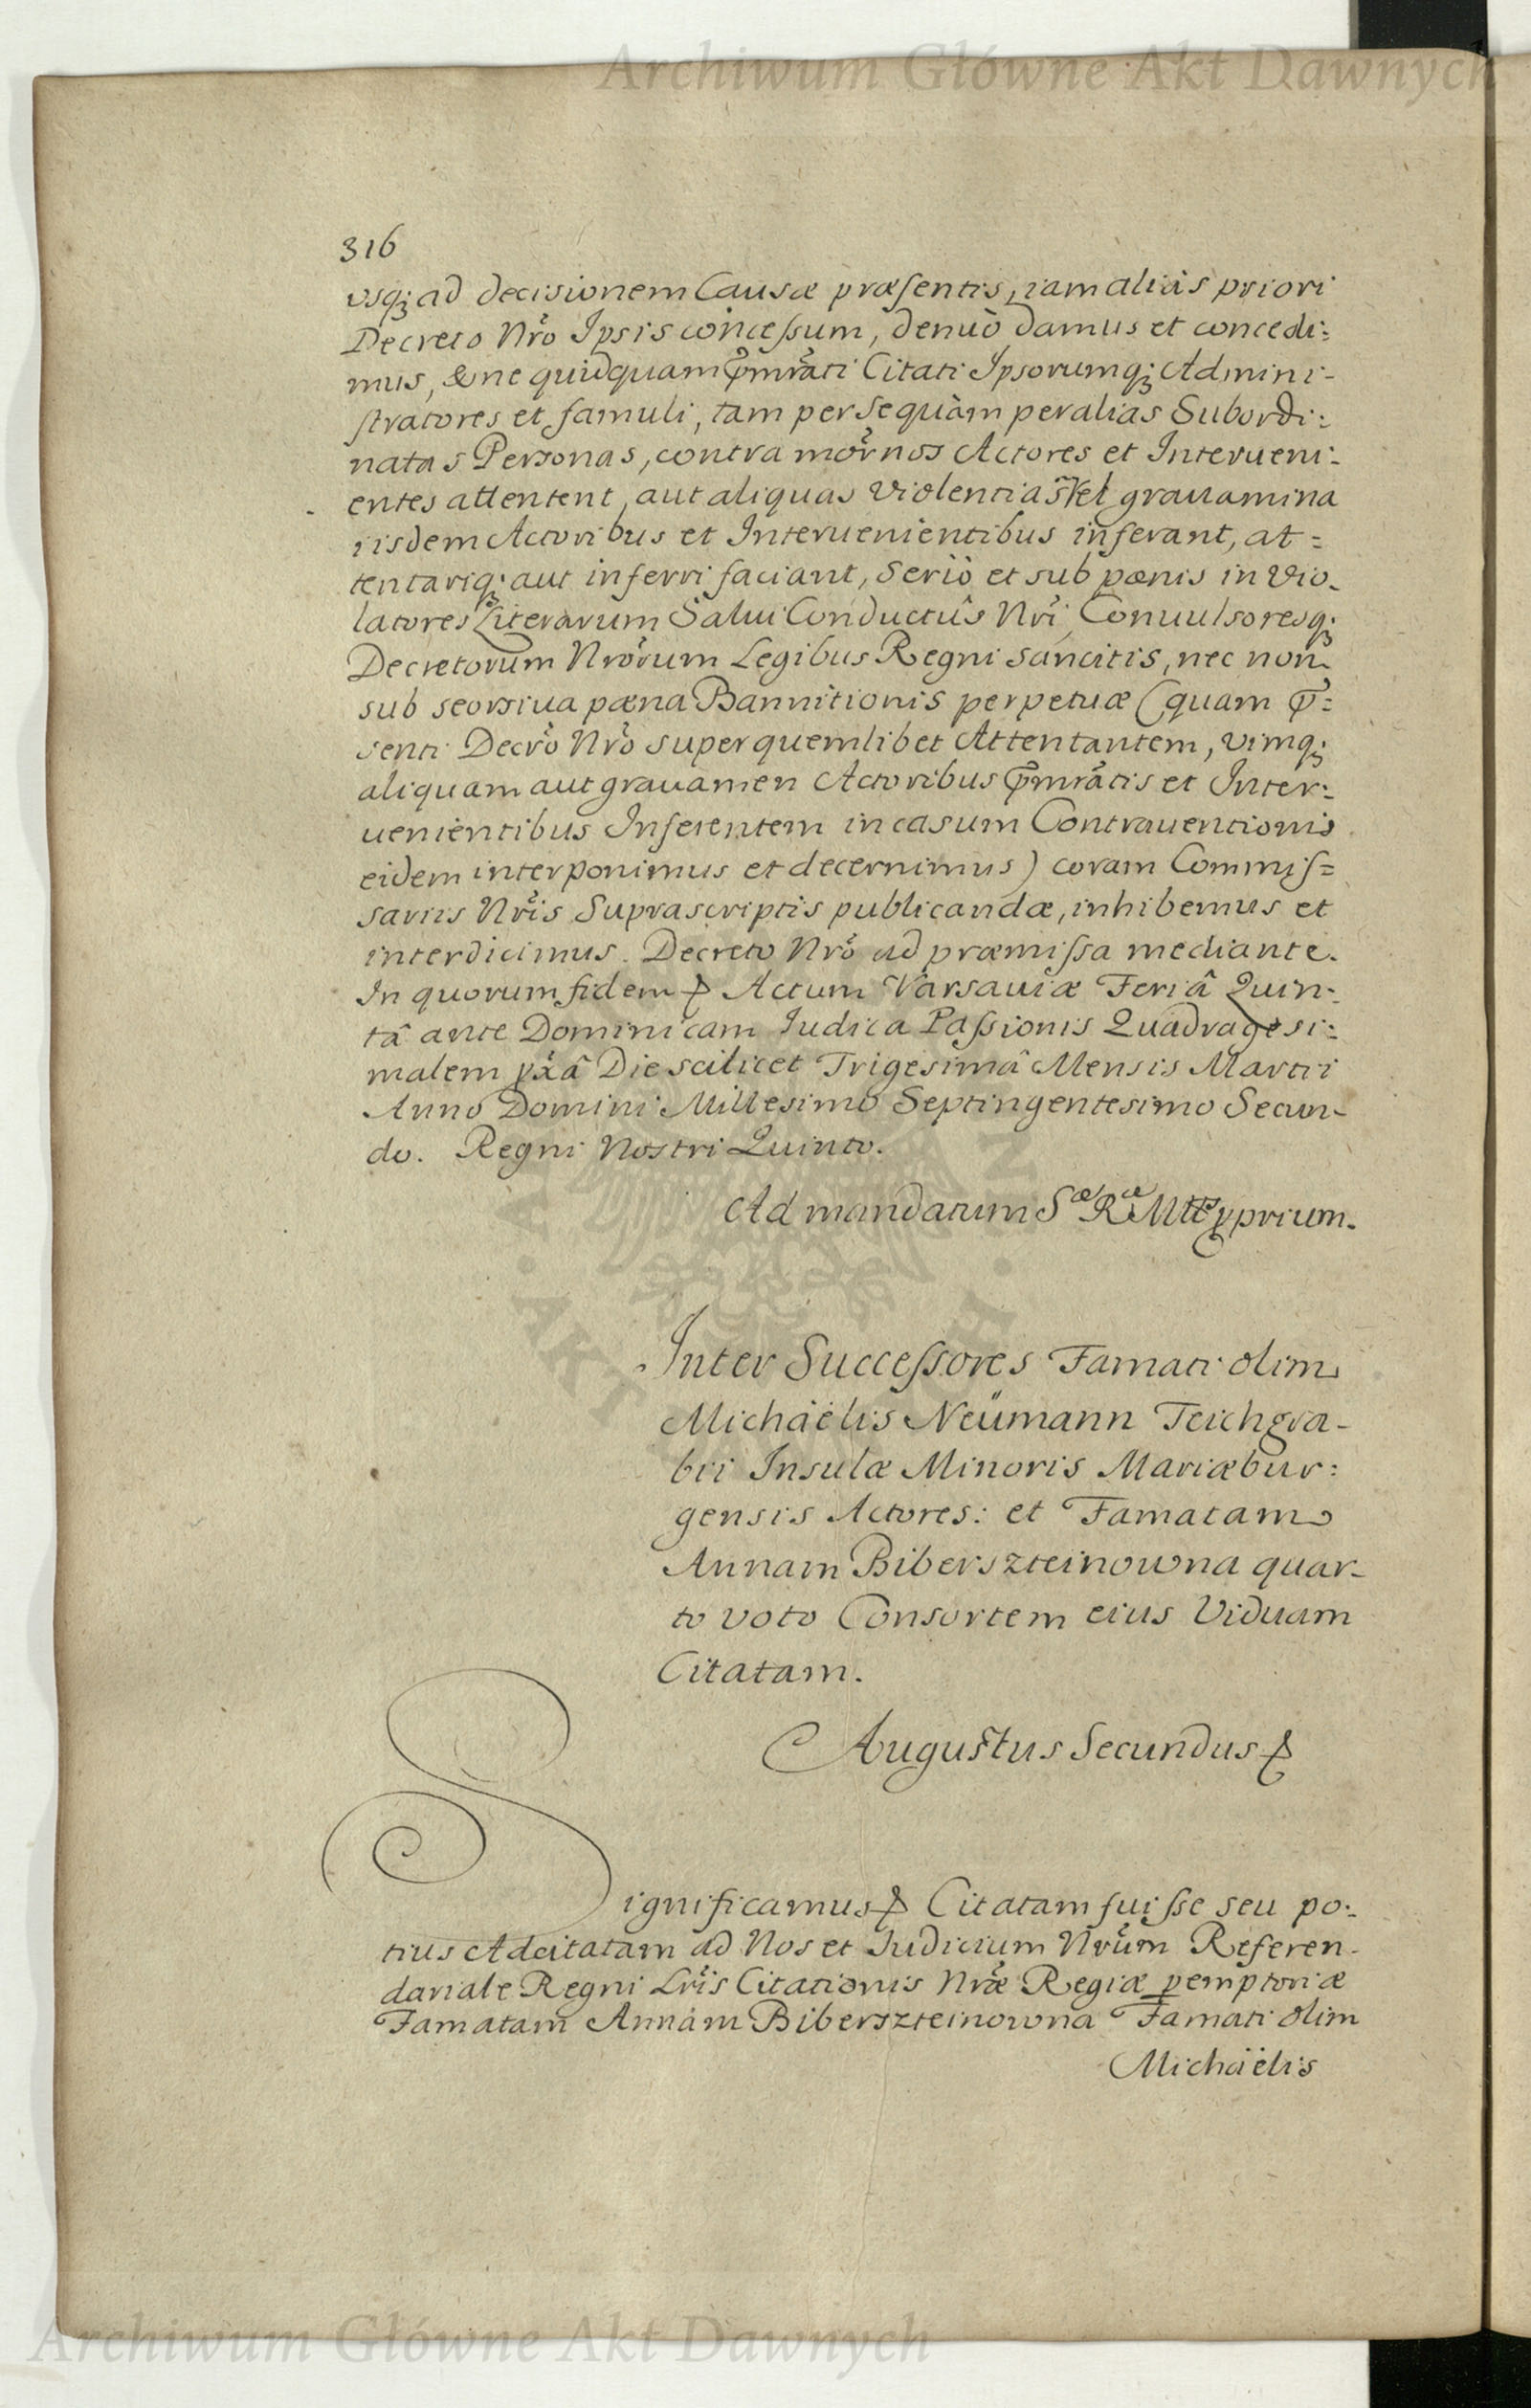 Archiwum Główne Akt Dawnych
316
vsq; ad decisionem Causæ præsentis, iam aliàs priori
Decreto Nr̃o Ipsis concessum, denuò damus et concedi:
mus, & ne quidquam p̃mr̃ati Citati Ipsorumq; Admini-
stratores et famuli, tam per se quàm per alias Subordi:
natas Personas, contra mor̃nos Actores et Interueni:
entes attentent, aut aliquas violentias vel grauamina
iisdem Actoribus et Interuenientibus inferant, at=
tentariq; aut inferri faciant, seriò et sub pœnis in vio-
latores Literarum Salui Conductûs Nr̃i, Conuulsoresq;
Decretorum Nr̃orum Legibus Regni sancitis, nec non
sub seorsiua pæna Bannitionis perpetuæ (quam p̃:
senti Decr̃o Nr̃o super quemlibet Attentantem, vimq;
aliquam aut grauamen Actoribus p̃mr̃atis et Inter:
uenientibus Inferentem in casum Contrauentionis
eidem interponimus et decernimus) coram Commis=
sariis Nr̃is Suprascriptis publicandæ, inhibemus et
interdicimus. Decreto Nr̃o ad præmissa mediante.
In quorum fidem & Actum Varsauiæ Feriâ Quin:
tâ ante Dominicam Iudica Passionis Quadragesi:
malem px̃â Die scilicet Trigesimâ Mensis Martii
Anno Domini Millesimo Septingentesimo Secun-
do. Regni Nostri Quinto.
Ad mandatum Sæ Ræ Mttis pprium.
Inter Successores Famati olim
Michaëlis Neümann Teichgra-
bii Insulæ Minoris Mariæbur:
gensis Actores: et Famatam
Annam Biberszteinowna quar-
to voto Consortem eius Viduam
Citatam.
Augustus Secundus &
Significamus & Citatam fuisse seu po:
tius Adcitatam ad Nos et Iudicium Nr̃um Referen-
dariale Regni Lr̃is Citationis Nr̃æ Regiæ pemptoriæ
Famatam Annam Biberszteinowna Famati olim
Michaëlis
Archiwum Główne Akt Dawnych